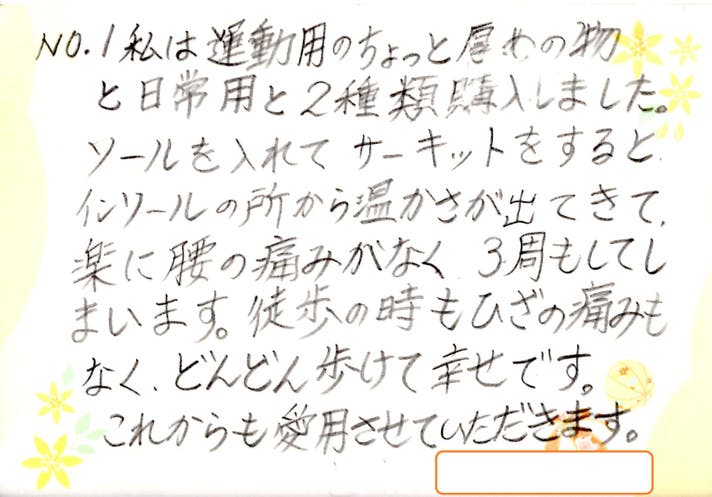 NO.1 私は運動用のちょっと厚めの物
と日常用と2種類購入しました。
ソールを入れてサーキットをすると、
インソールの所から温かさが出てきて、
楽に腰の痛みがなく、3周もしてし
まいます。徒歩の時もひざの痛みも
なく、どんどん歩けて幸せです。
これからも愛用させていただきます。